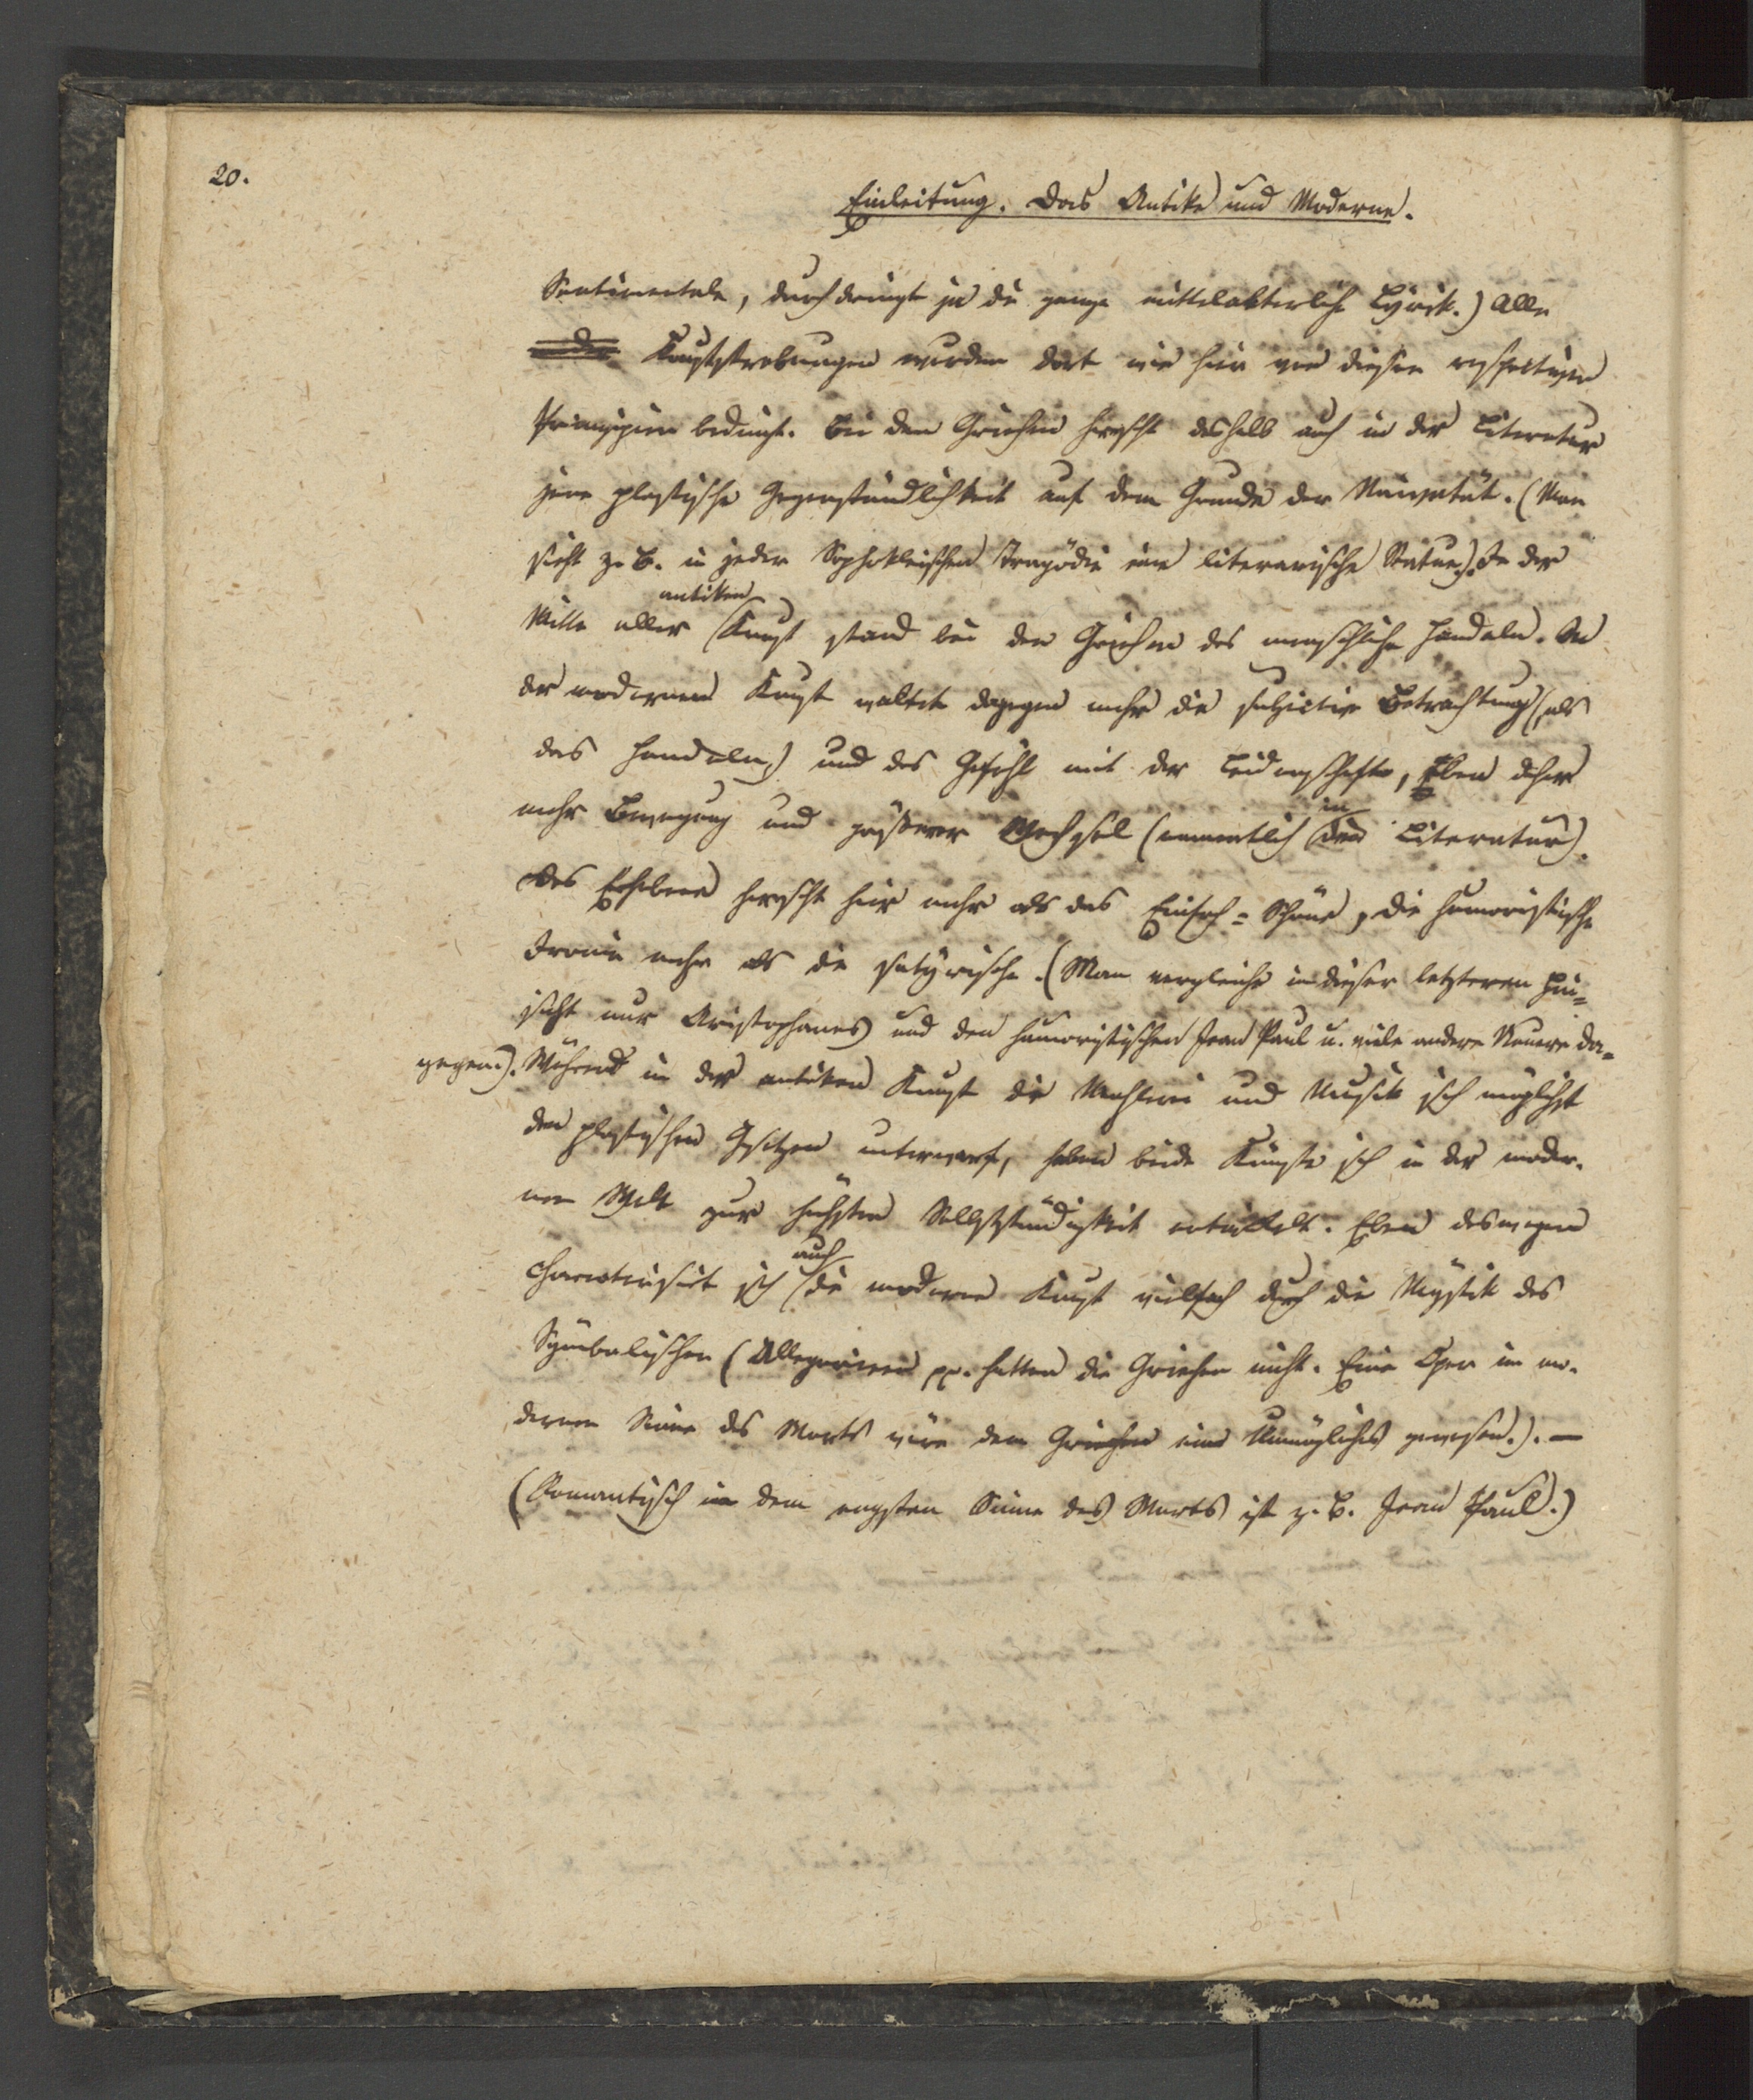 20.
Einleitung. Das Antike und Moderne.
Sentimentale, durchdringt ja die ganze mittelalterliche Lyrik.) Alle
Kunststrebungen wurden dort wie hier von diesen respectiven
Prinzipien bedingt. Bei den Griechen herrscht deshalb auch in der Literatur
jene plastische Gegenständlichkeit auf dem Grunde der Naivetät. (Man
sieht z. B. in jeder Sophokleischen Tragödie eine literarische Statue.). In der
antiken
Mitte aller Kunst stand bei den Griechen das menschliche Handeln. In
der modernen Kunst waltet dagegen mehr die subjective Betrachtung (als
das Handeln,) und das Gefühl mit der Leidenschaft, Eben daher
in
mehr Bewegung und größerer Wechsel (namentlich der Literatur).
Das Erhabene herrscht hier mehr als das Einfach=Schöne, die humoristische
Ironie mehr als die satyrische. (Man vergleiche in dieser letzteren Hin=
sicht nur Aristophanes und den humoristischen Jean Paul u. viele andere Neuere da=
gegen.). Während in der antiken Kunst die Mahlerei und Musik sich möglichst
den plastischen Gesetzen unterwarf, haben beide Künste sich in der moder-
nen Welt zur höchsten Selbstständigkeit entwickelt. Eben deswegen
auch
charakterisirt sich die moderne Kunst vielfach durch die Mystik des
Symbolischen (Allegorieen pp. hatten die Griechen nicht. Eine Oper im mo-
dernen Sinne des Worts wäre den Griechen eine Unmögliches gewesen.). —
(Romantisch in dem engsten Sinne des Worts ist z. B. Jean Paul.)